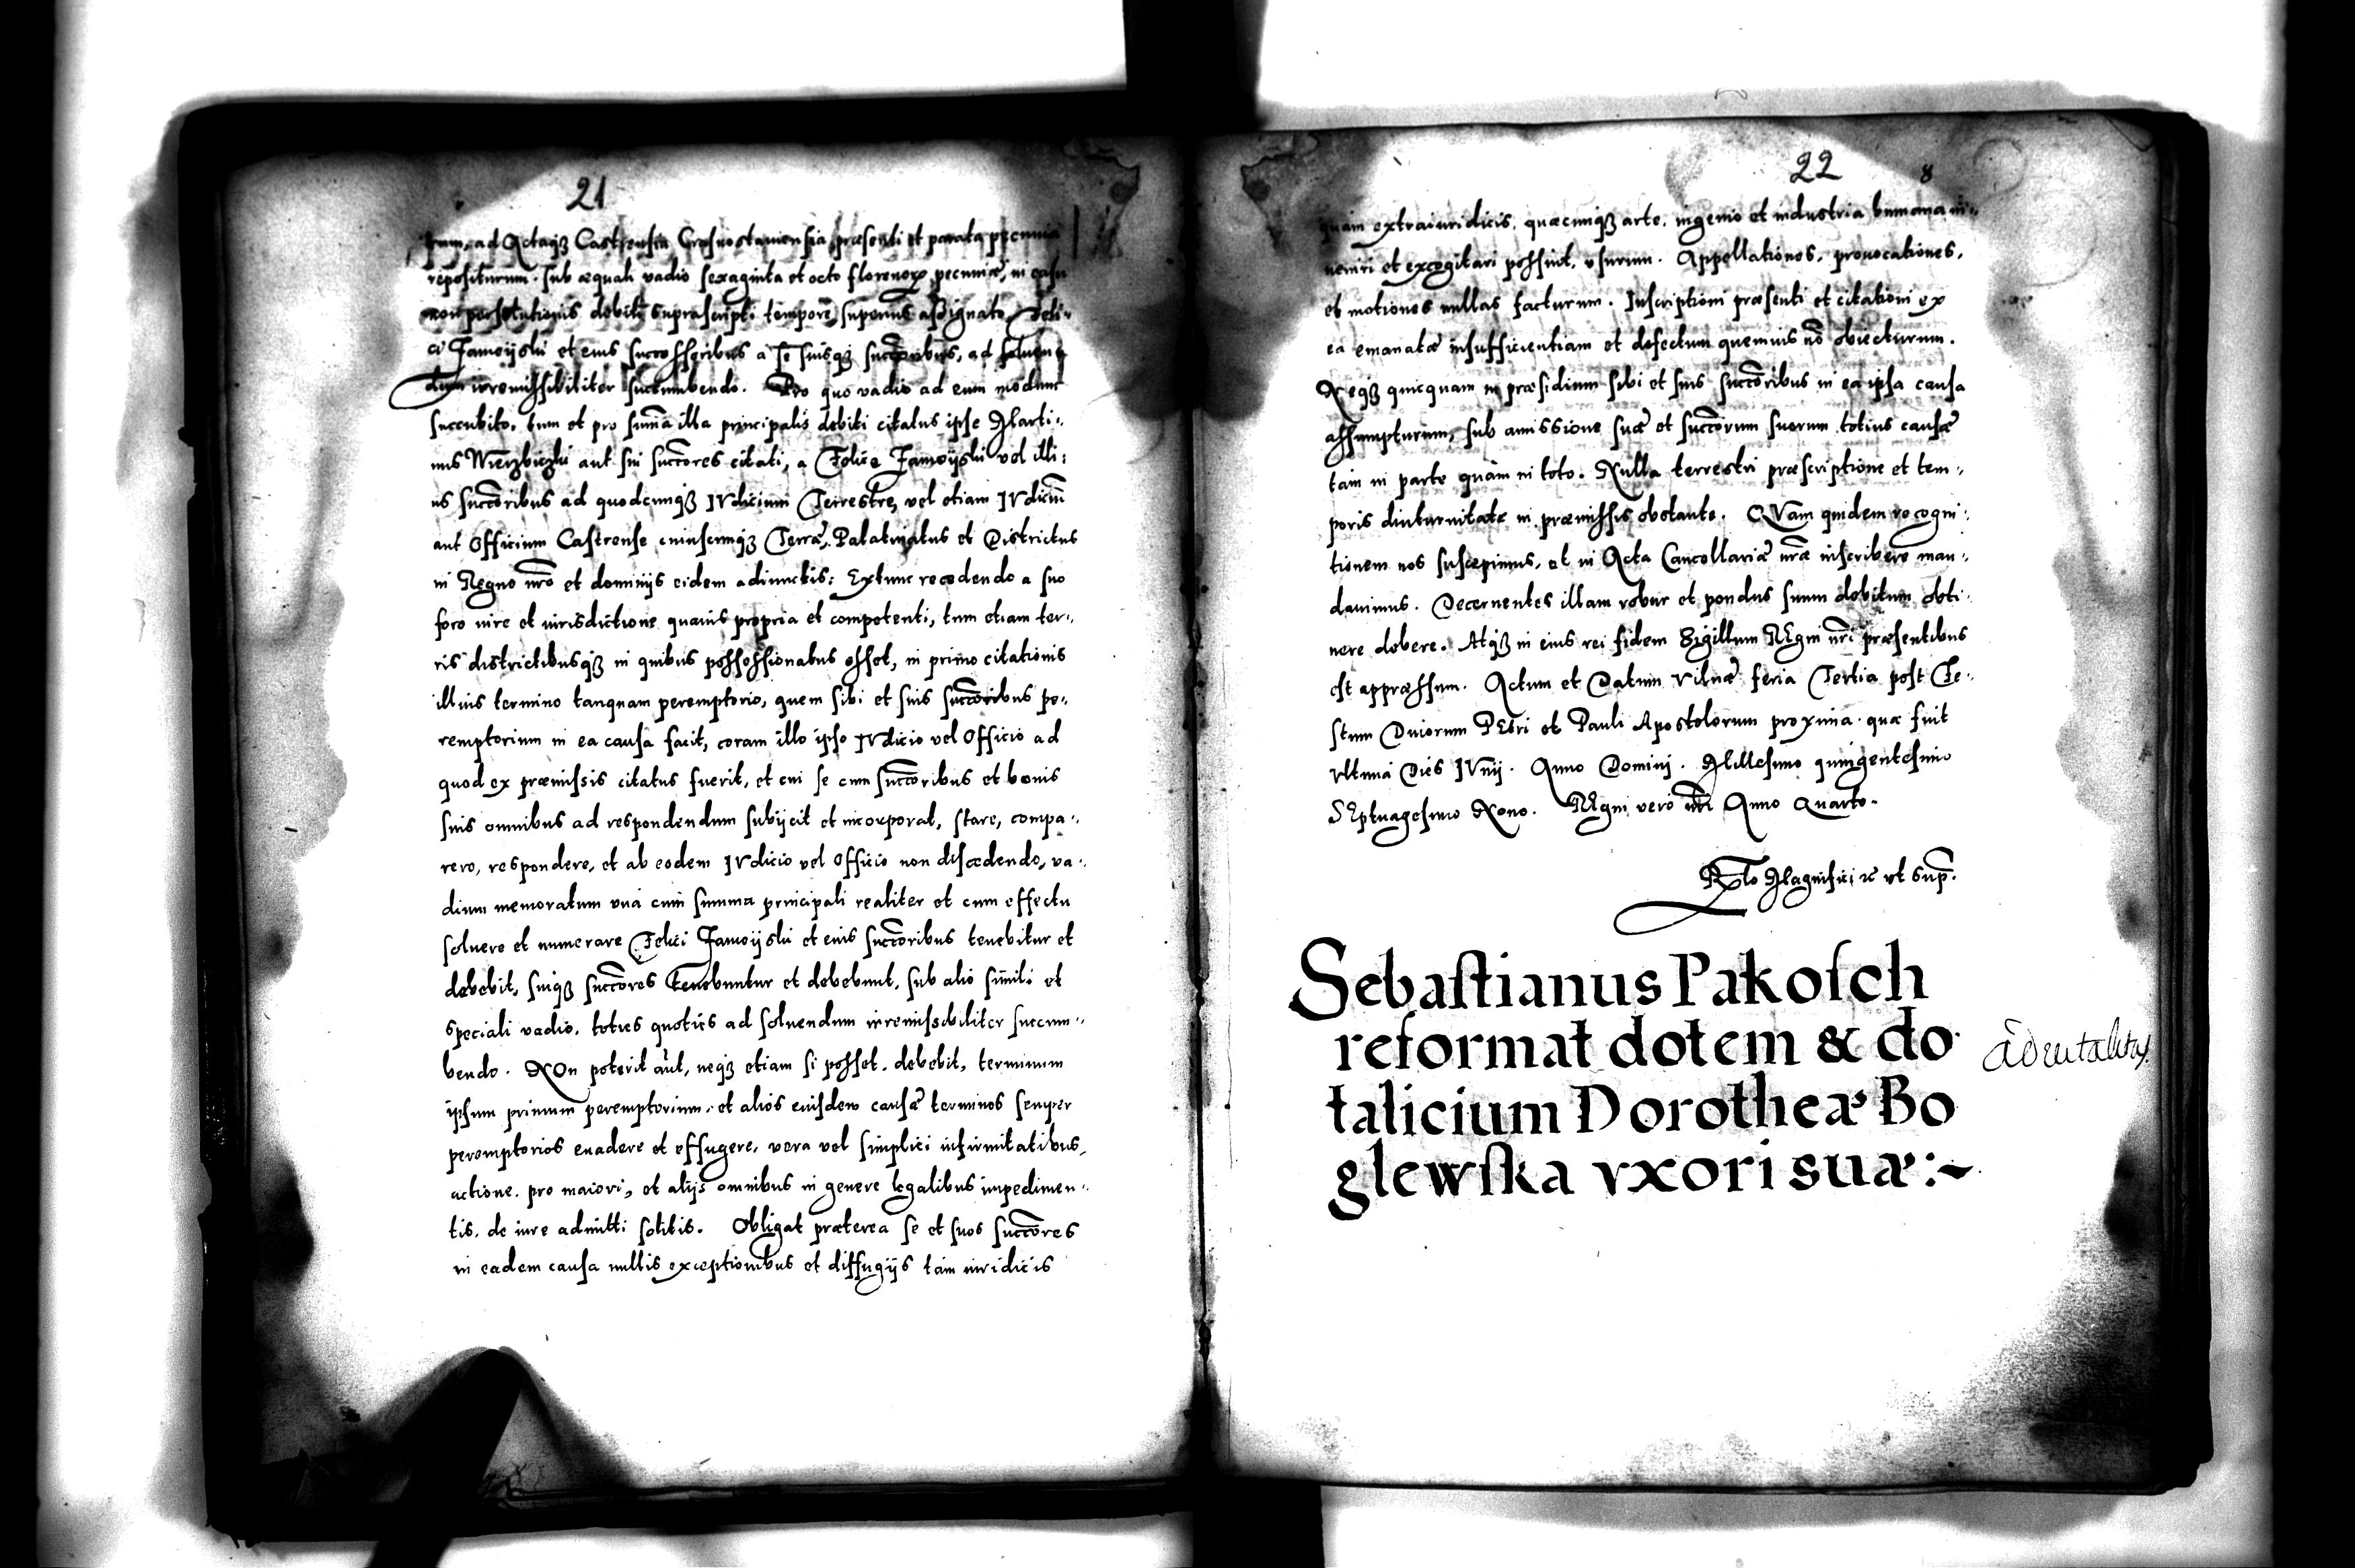 21
rum, ad Actaq3 Castrensia Crasnostauiensia, præsenti et parata pecunia
repositurum. sub æquali vadio sexaginta et octo florenorum pecuniæ, in casu
non persolutionis debiti suprascripti tempore superius assignato Foeli-
ci Zamoÿski et eius successoribus a se suisq3 succoribus, ad soluen
dum irremissibiliter succumbendo. Pro quo vadio ad eum modum
succubito, tum et pro suma illa principalis debiti citatus ipse Marti-
nus Wierzbiczki aut sui succores citati, a Felice Zamoÿski vel illi-
us succoribus ad quodcumq3 IVdicium Terrestre, vel etiam IVdiciu
aut Officium Castrense cuiuscumq3 Terræ, Palatinatus et Districtus
in Regno nro et dominijs eidem adiunctis: Extunc recedendo a suo
foro iure et iurisdictione quauis propria et competenti, tum etiam ter-
ris districtibusq3 in quibus possessionatus esset, in primo citationis
illius termino tanquam peremptorio, quem sibi et suis succoribus pe-
remptorium in ea causa facit, coram illo ipso IVdicio vel Officio ad
quod ex præmissis citatus fuerit, et cui se cum succoribus et bonis
suis omnibus ad respondendum subijcit et incorporat, stare, compa-
rere, respondere, et ab eodem IVdicio vel Officio non discedendo, va-
dium memoratum vná cum summa principali realiter et cum effectu
soluere et numerare Felici Zamoÿski et eius succoribus tenebitur et
debebit, suiq3 succores tenebuntur et debebunt, sub alio simili et
speciali vadio, toties quoties ad soluendum irremissibiliter succum-
bendo. NOn poterit aut, neq3 etiam si posset, debebit, terminum
ipsum primum peremptorium, et alios eiusdem causæ terminos semper
peremptorios euadere et effugere, vera vel simplici infirmitatibus,
actione pro maiori, et alijs omnibus in genere legalibus impedimen-
tis, de iure admitti solitis. Obligat præterea se et suos succores
in eadem causa nullis exceptionibus et diffugijs tam iuridicis
22
8
quam extraiuridicis, quæcumq3 arte, ingenio et industria humana in-
ueniri et excogitari possint, vsurum. Appellationes, prouocationes,
et motiones nullas facturum. Inscriptioni præsenti et citationi ex
ea emanatæ insufficientiam et defectum quemuis no obiecturum.
Neq3 quicquam in præsidium sibi et suis succoribus in ea ipsa causa
assumpturum, sub amissione suæ et succorum suorum totius causæ
tam in parte quàm in toto. Nulla terrestri præscriptione et tem-
poris diuturnitate in præmissis obstante. QVam quidem recogni-
tionem nos suscepimus, et in Acta Cancellariæ nræ inscribere man-
dauimus. Decernentes illam robur et pondus suum debitum obti-
nere debere. Atq3 in eius rei fidem SIgillum REgni nri præsentibus
est appræssum. Actum et Datum Vilnæ feria Tertia post Fe-
stum Diuiorum PEtri et Pauli Apostolorum proxima quæ fuit
vltima Dies IVnij. Anno Domini. Millesimo quingentesimo
SEptuagesimo Nono. REgni vero nri Anno Quarto.
Rlo Magnifici rc vt Sup.
Sebastianus Pakosch
reformat dotem & do
talicium Dorotheæ Bo
glewska vxori suæ:~